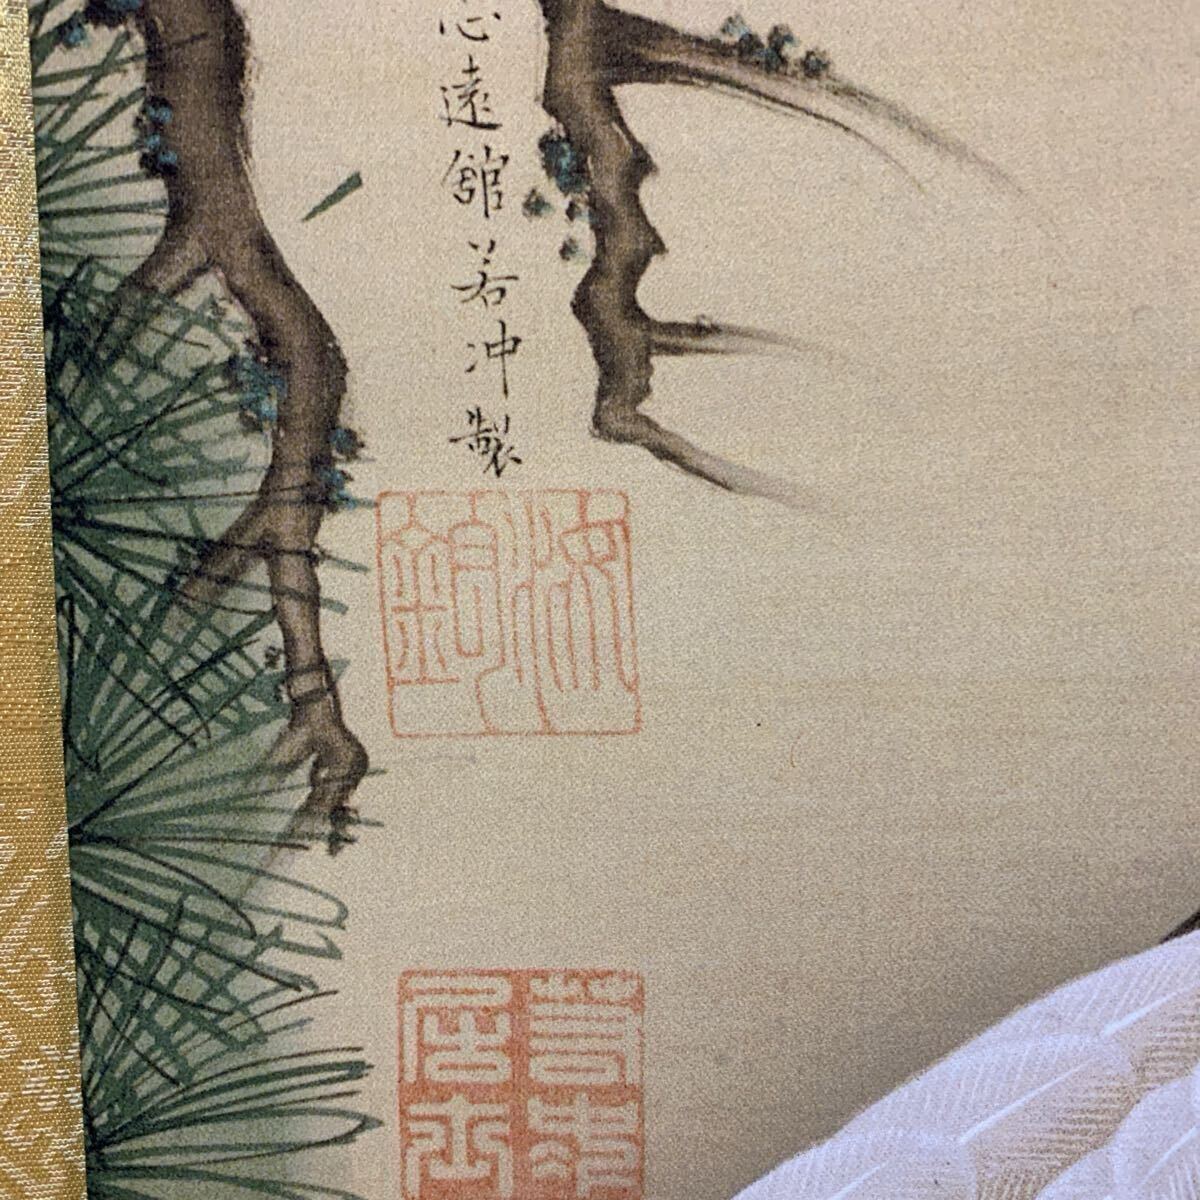 心遠館若冲製
汝鈞
若冲居士